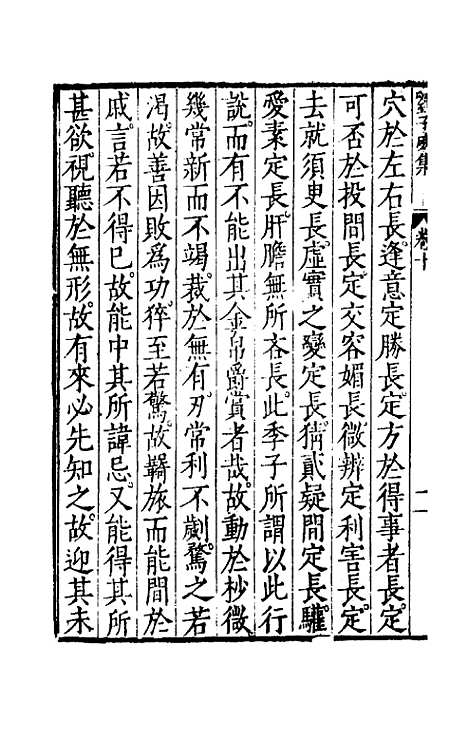 穴於左右長逢意定勝長定方於得事者長定
可否於投間長定交容媚長微辨定利害長定
去就須臾長虛實之變定長猜貳疑間定長驩
愛素定長肝膽無所吝長此季子所謂以此行
說而有不能出其金帛爵賞者哉故動於杪微
幾常新而不竭裁於無有刃常利不劌騖之若
渴故善因敗為功猝至若驚故羇旅而能間於
戚言若不得已故能中其所諱忌又能得其所
甚欲視聽於無形故有來必先知之故迎其未
卷十